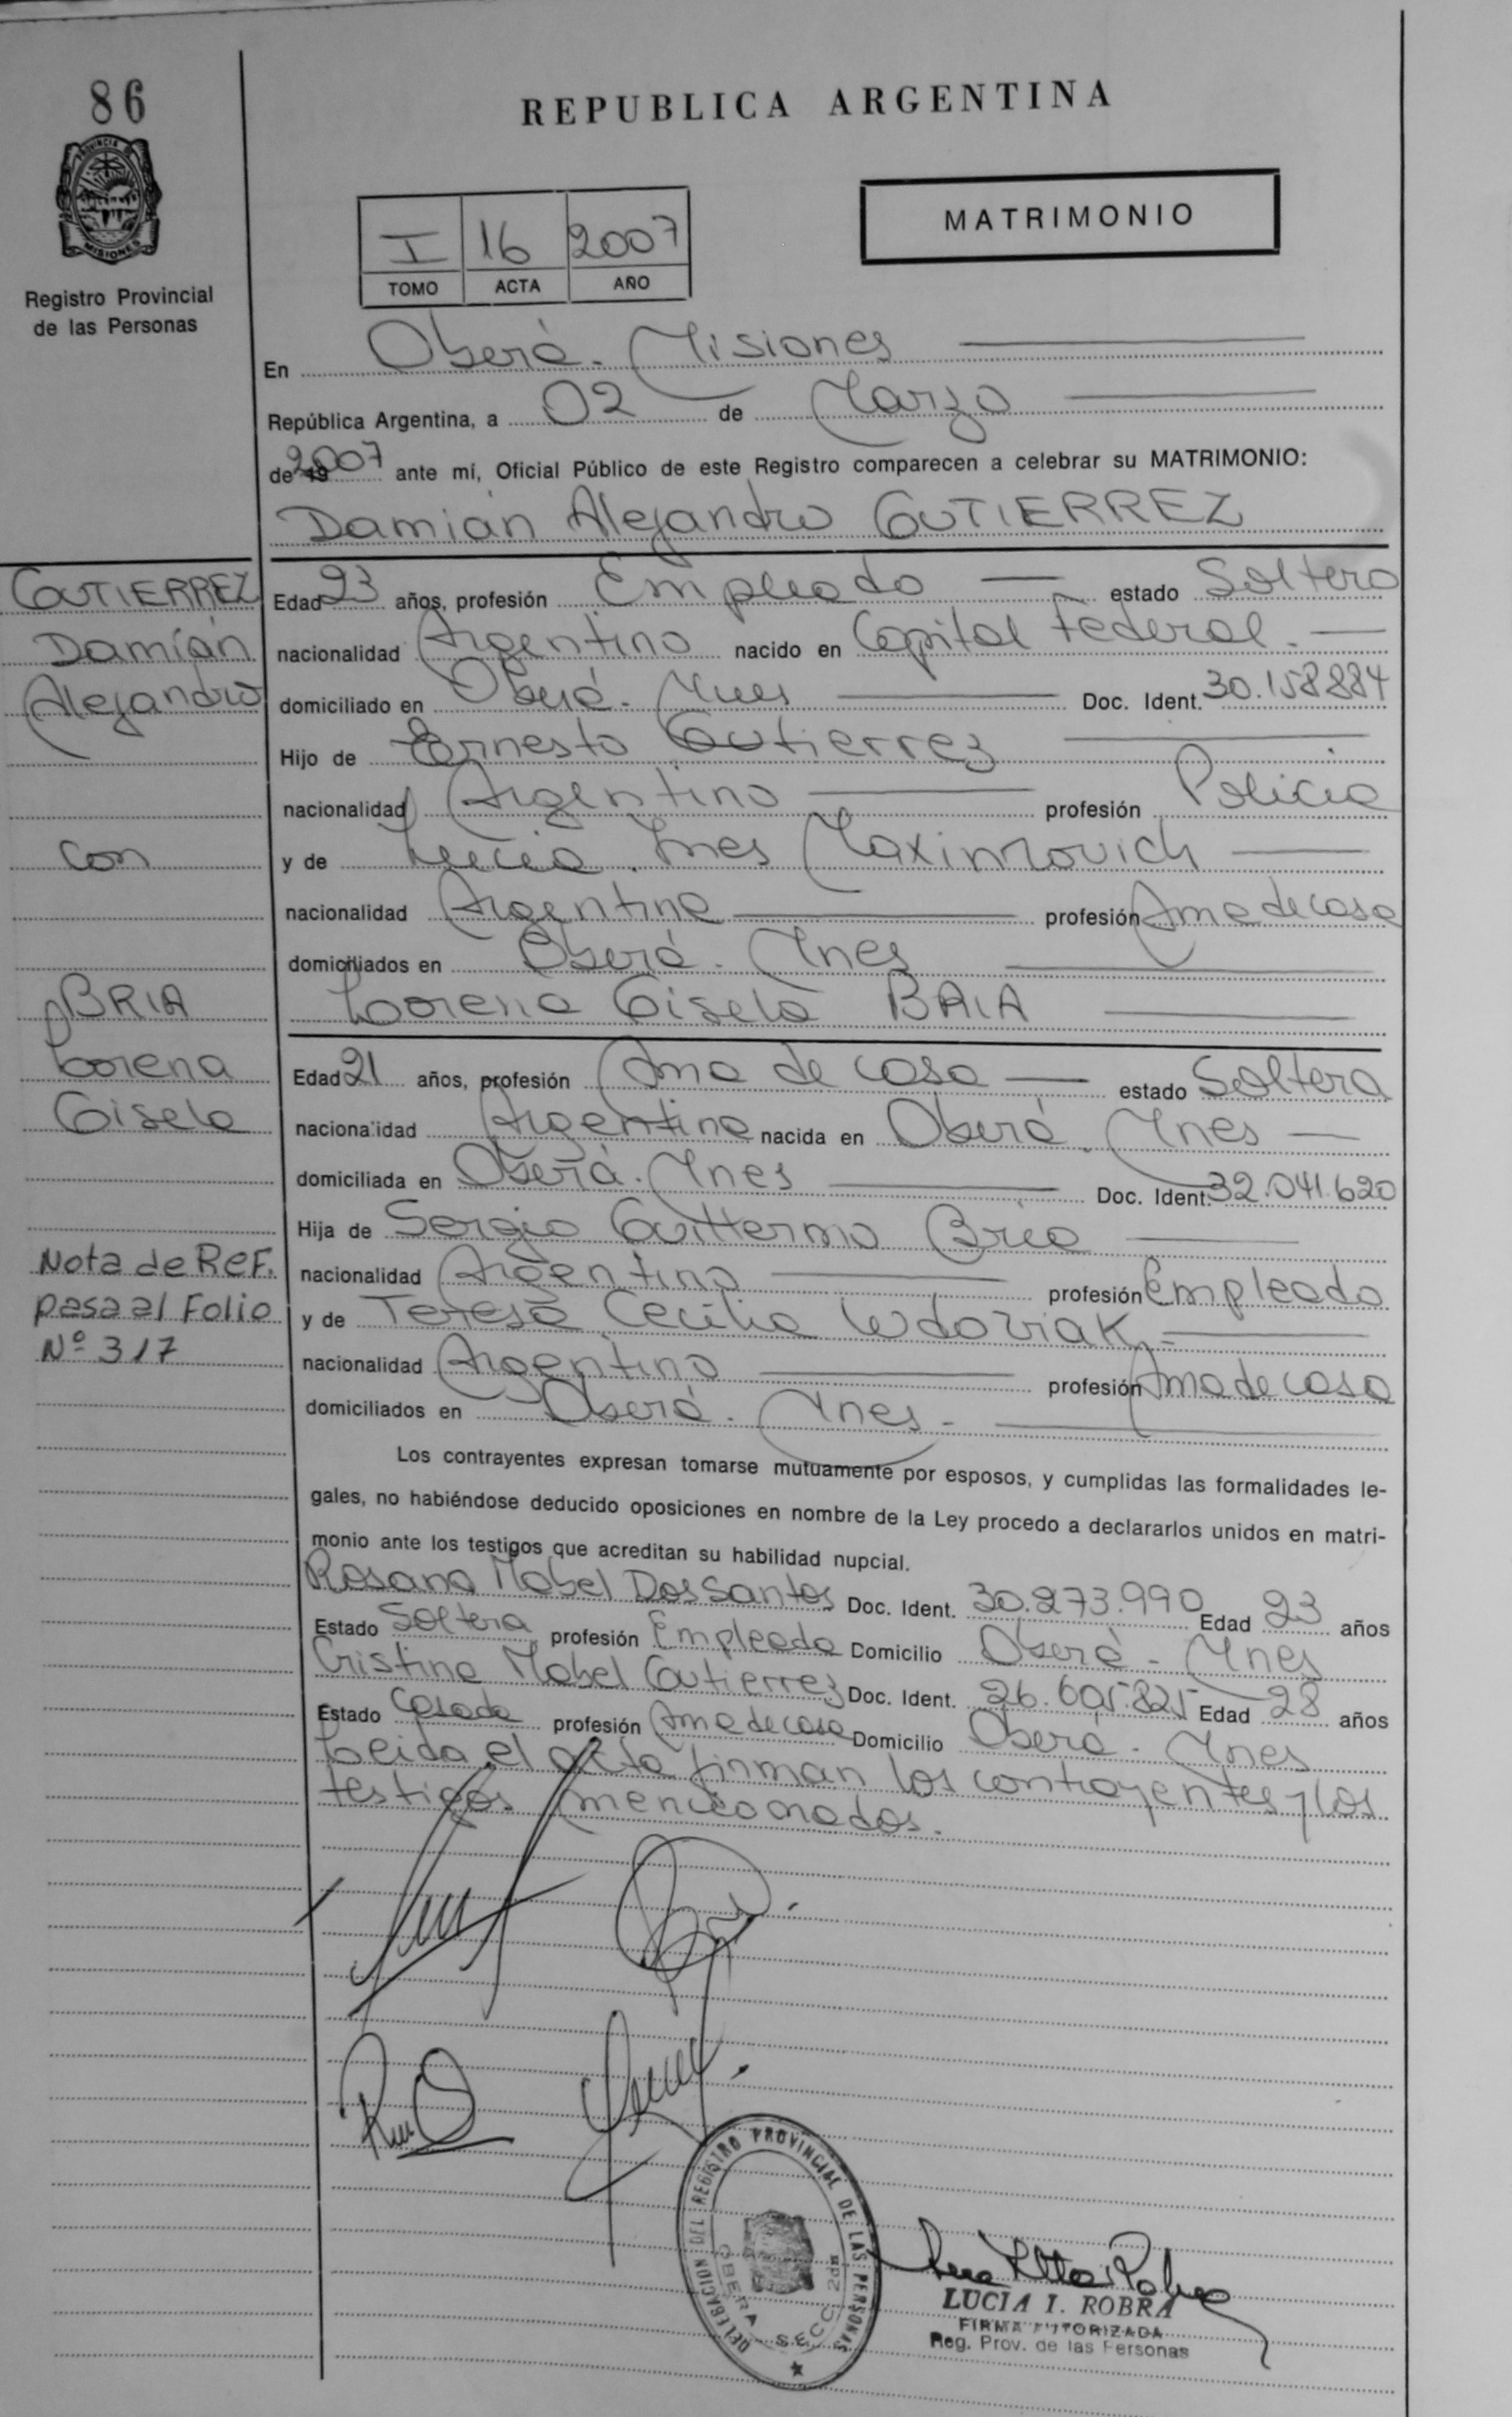 86
REPUBLICA ARGENTINA
PROVINCIA DE
MISIONES
Registro Provincial
de las Personas
MATRIMONIO
I 16 2007
TOMO ACTA AÑO
En Oberá. Misiones
República Argentina, a 02 de Marzo
de 2007 ante mí, Oficial Público de este Registro comparecen a celebrar su MATRIMONIO:
Damián Alejandro GUTIERREZ
GUTIERREZ
Damián
Alejandro
con
BRIA
Lorena
Gisela
Nota de Ref.
pasa al Folio
Nº 317
Edad 23 años, profesión Empleado estado Soltero
nacionalidad Argentino nacido en Capital Federal.
domiciliado en Oberá. Mnes Doc. Ident. 30.158.884
Hijo de Ernesto Gutierrez
nacionalidad Argentino profesión Policia
y de Lucia Ines Maximovich
nacionalidad Argentina profesión Ama de casa
domiciliados en Oberá. Mnes
Lorena Gisela BRIA
Edad 21 años, profesión Ama de casa estado Soltera
nacionalidad Argentina nacida en Oberá. Mnes
domiciliada en Oberá. Mnes Doc. Ident. 32.041.620
Hija de Sergio Guillermo Bria
nacionalidad Argentino profesión Empleado
y de Teresa Cecilia
nacionalidad Argentino profesión Ama de casa
domiciliados en Oberá. Mnes.
Los contrayentes expresan tomarse mutuamente por esposos, y cumplidas las formalidades le-
gales, no habiéndose deducido oposiciones en nombre de la Ley procedo a declararlos unidos en matri-
monio ante los testigos que acreditan su habilidad nupcial.
Rosana Mabel Dos Santos Doc. Ident. 30.273.990 Edad 23 años
Estado Soltera profesión Empleada Domicilio Oberá. Mnes
Cristina Mabel Gutierrez Doc. Ident. 26.605.825 Edad 28 años
Estado Casada profesión Ama de casa Domicilio Oberá. Mnes
Leida el acta firman los contrayentes y los
testigos mencionados.
DELEGACION DEL REGISTRO PROVINCIAL DE LAS PERSONAS
OBERA SECC. 2da
LUCIA I. ROBRA
FIRMA AUTORIZADA
Reg. Prov. de las Personas